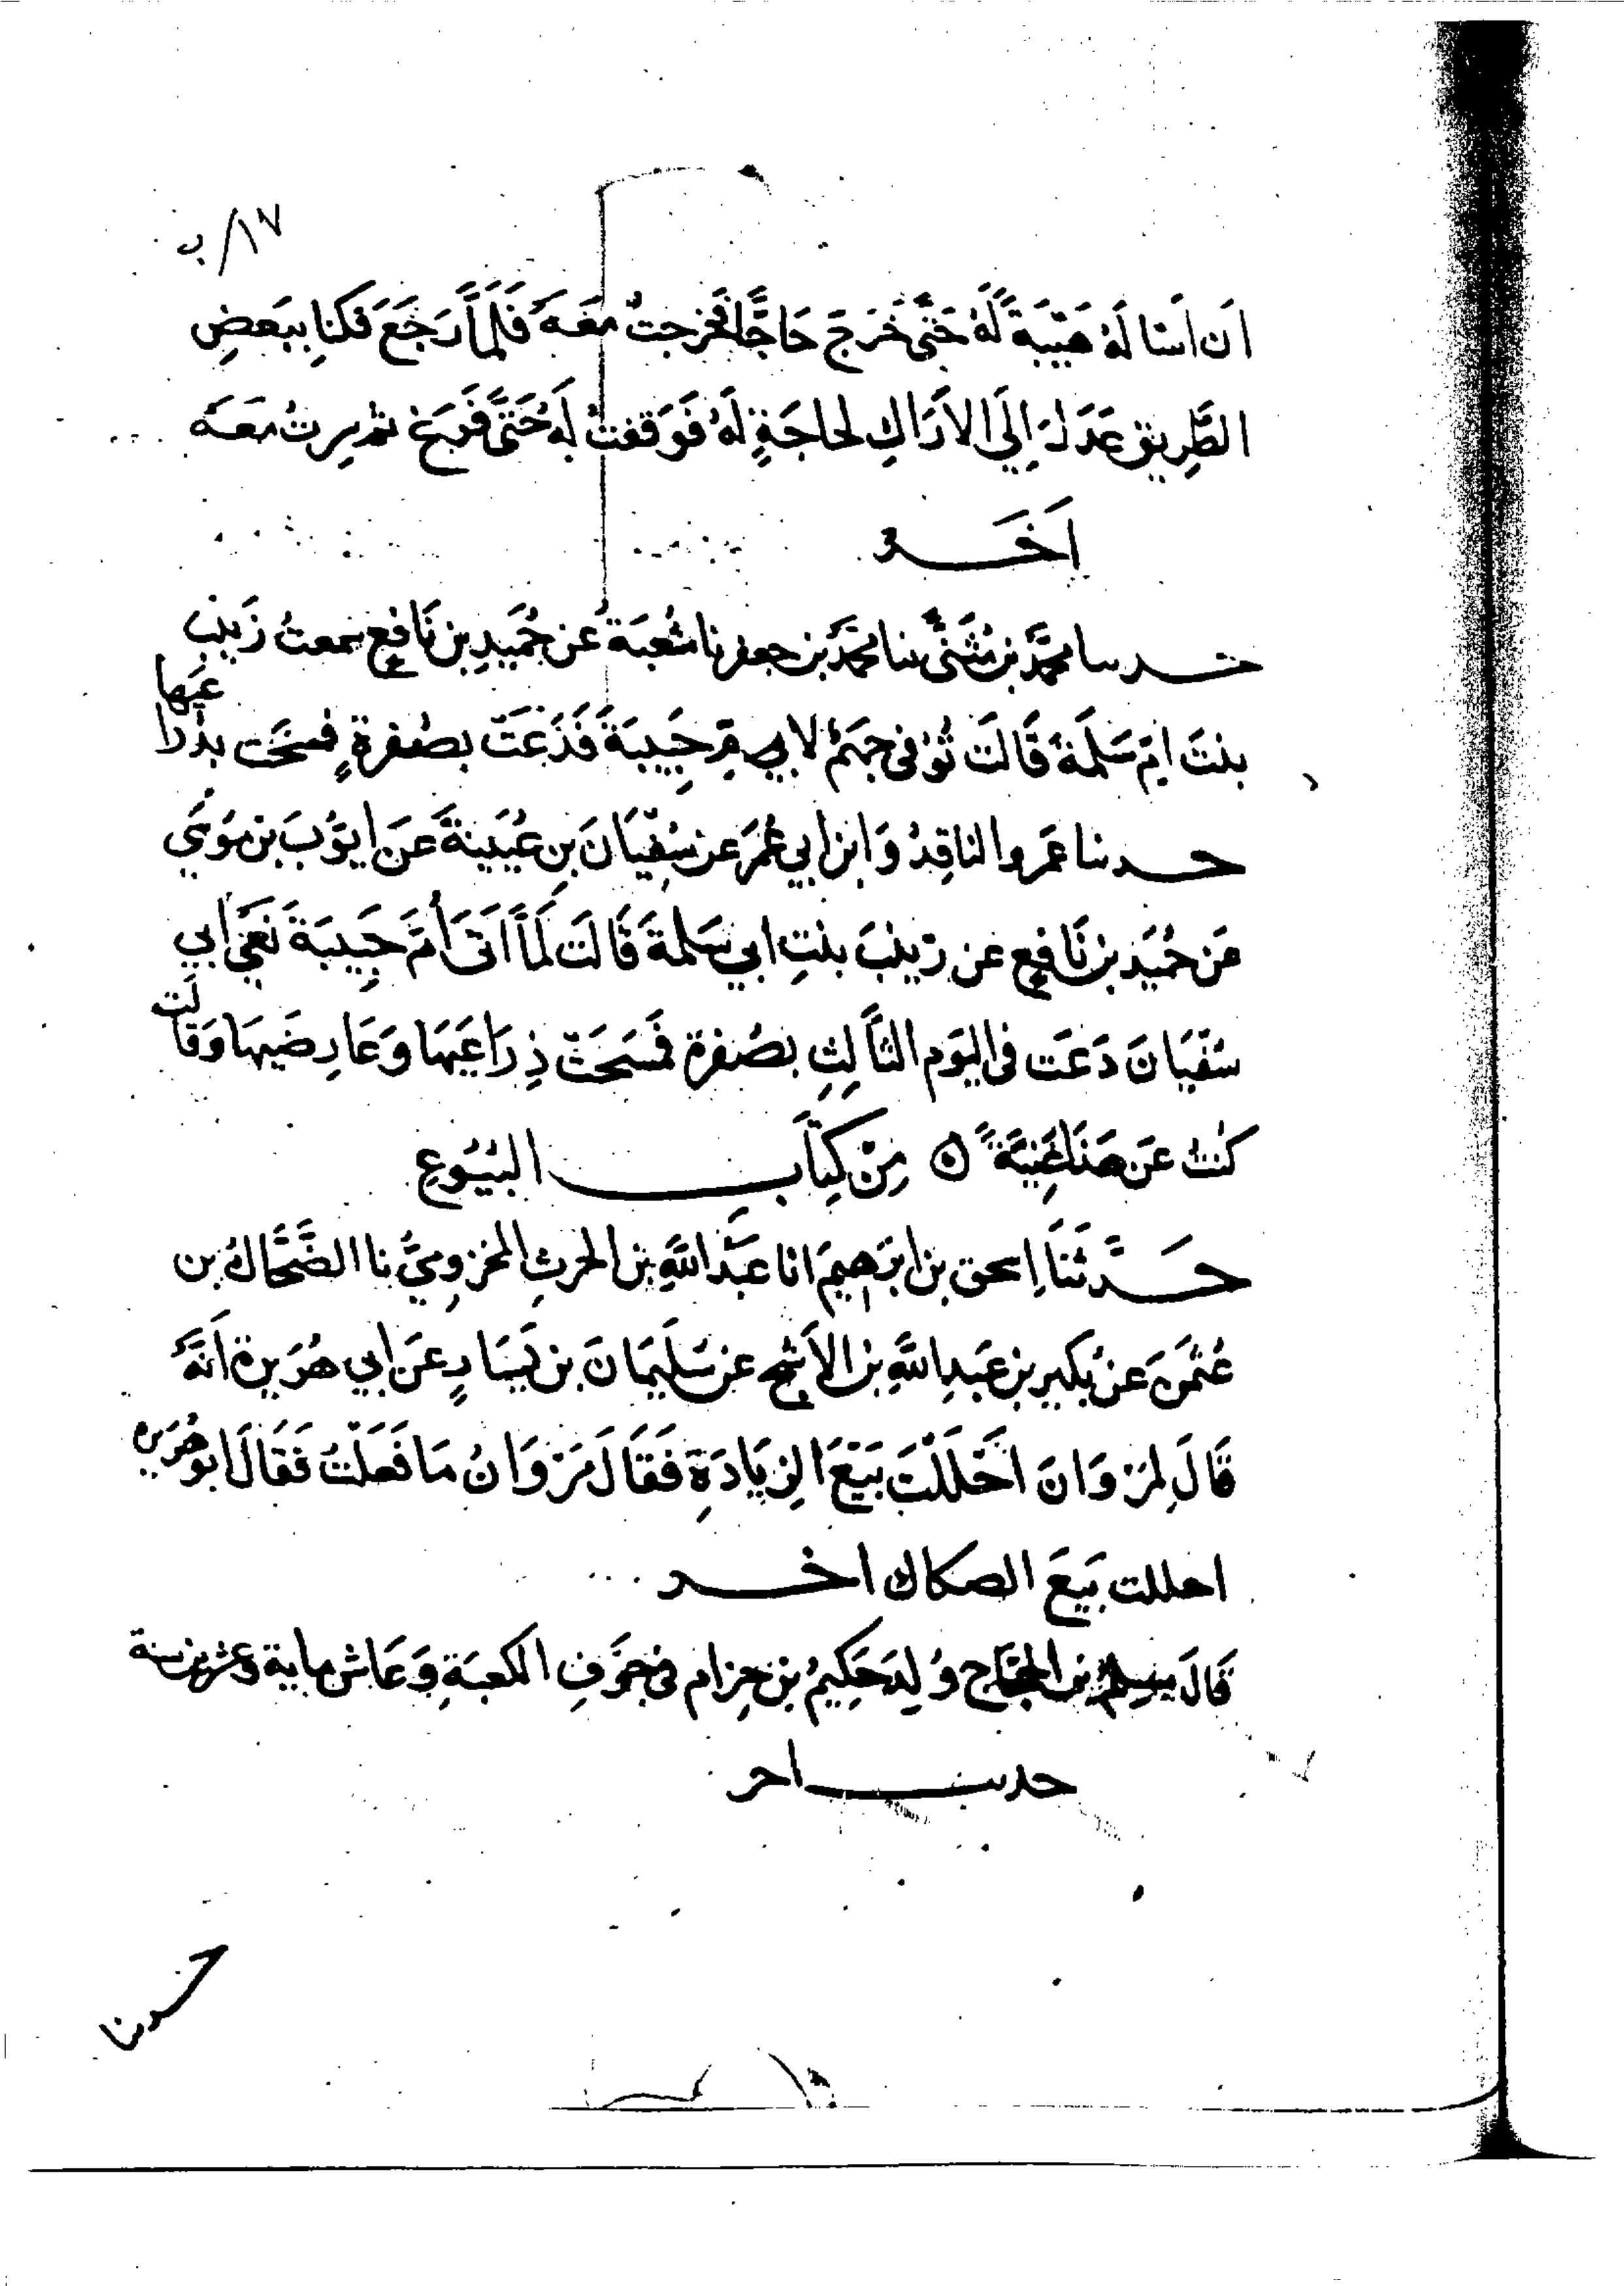 ١٧/ب
ان اَسْاَلَهُ هَيْبَةً لَهُ حَتَّى خَرَجَ حَاجًّا فخرجتُ مَعَهُ فَلَمَّا رَجَعَ فكنا ببَعضِ
الطَّرِيق عَدَلَ إِلَى الاَرَاكِ لحاجَةٍ لَهُ فَوَقفتُ لَهُ حَتَّى فَرَغَ ثم سِرتُ مَعَهُ
اَخَر
حدثنا محمَّدُ بنُ مُثَنَّى ثنا محمَّدُ بن جعفر نا شُعبَةُ عَن حُمَيدِ بن نَافِعٍ سمعتُ زَينَب
بنتَ امِّ سَلَمَةَ قَالَت تُوُفى حَمِيمٌ لاُمِّ حَبِيبَةَ فَدَعَتْ بصُفرةٍ فمسَحَت بذراعَيها
حدثنا عَمرو الناقِدُ وَابنُ ابي عُمَرَ عن سُفيَانَ بنِ عُيَينَةَ عَن ايوُّبَ بن مُوسَى
عَن حُمَيد بن نَافِعٍ عن زَينبَ بنتِ ابي سَلمةَ قَالَت لَمَّا اَتَى أُمَّ حَبِيبَةَ نَعْىُ ابي
سُفيَانَ دَعَت في اليَوم الثَّالِثِ بصُفرة فمَسَحَتْ ذِرَاعَيهَا وَعَارِضَيهَا وَقَالَت
كنتُ عَن هَذَا غَنِيَّةً ۝ مِنْ كِتَاب البُيُوعِ
حَدَّثنَا إِسحق بن ابرَهِيمَ انا عَبدُ اللَّهِ بن الحرثِ المخزومِيُّ نا الضَّحَّاكُ بن
عُثمَنَ عَن بُكير بن عَبدِ اللَّهِ بن الاَشَجِ عن سُلَيمَانَ بن يَسَارٍ عَن ابي هُرَيرةَ اَنَّهُ
قَالَ لِمَرْوَانَ اَحْلَلْتَ بَيْعَ الزِيَادَةِ فَقَالَ مَرْوَانُ مَا فَعَلْتُ فَقَالَ ابو هُرَيره
احللت بَيعَ الصكاك اخر
قَالَ مسلم بن الحجَّاج وُلِدَ حَكِيمُ بن حِزام في جَوْفِ الكعبَةِ وَعَاش ماية وعشرين سنة
حديث اخر
حدثنا